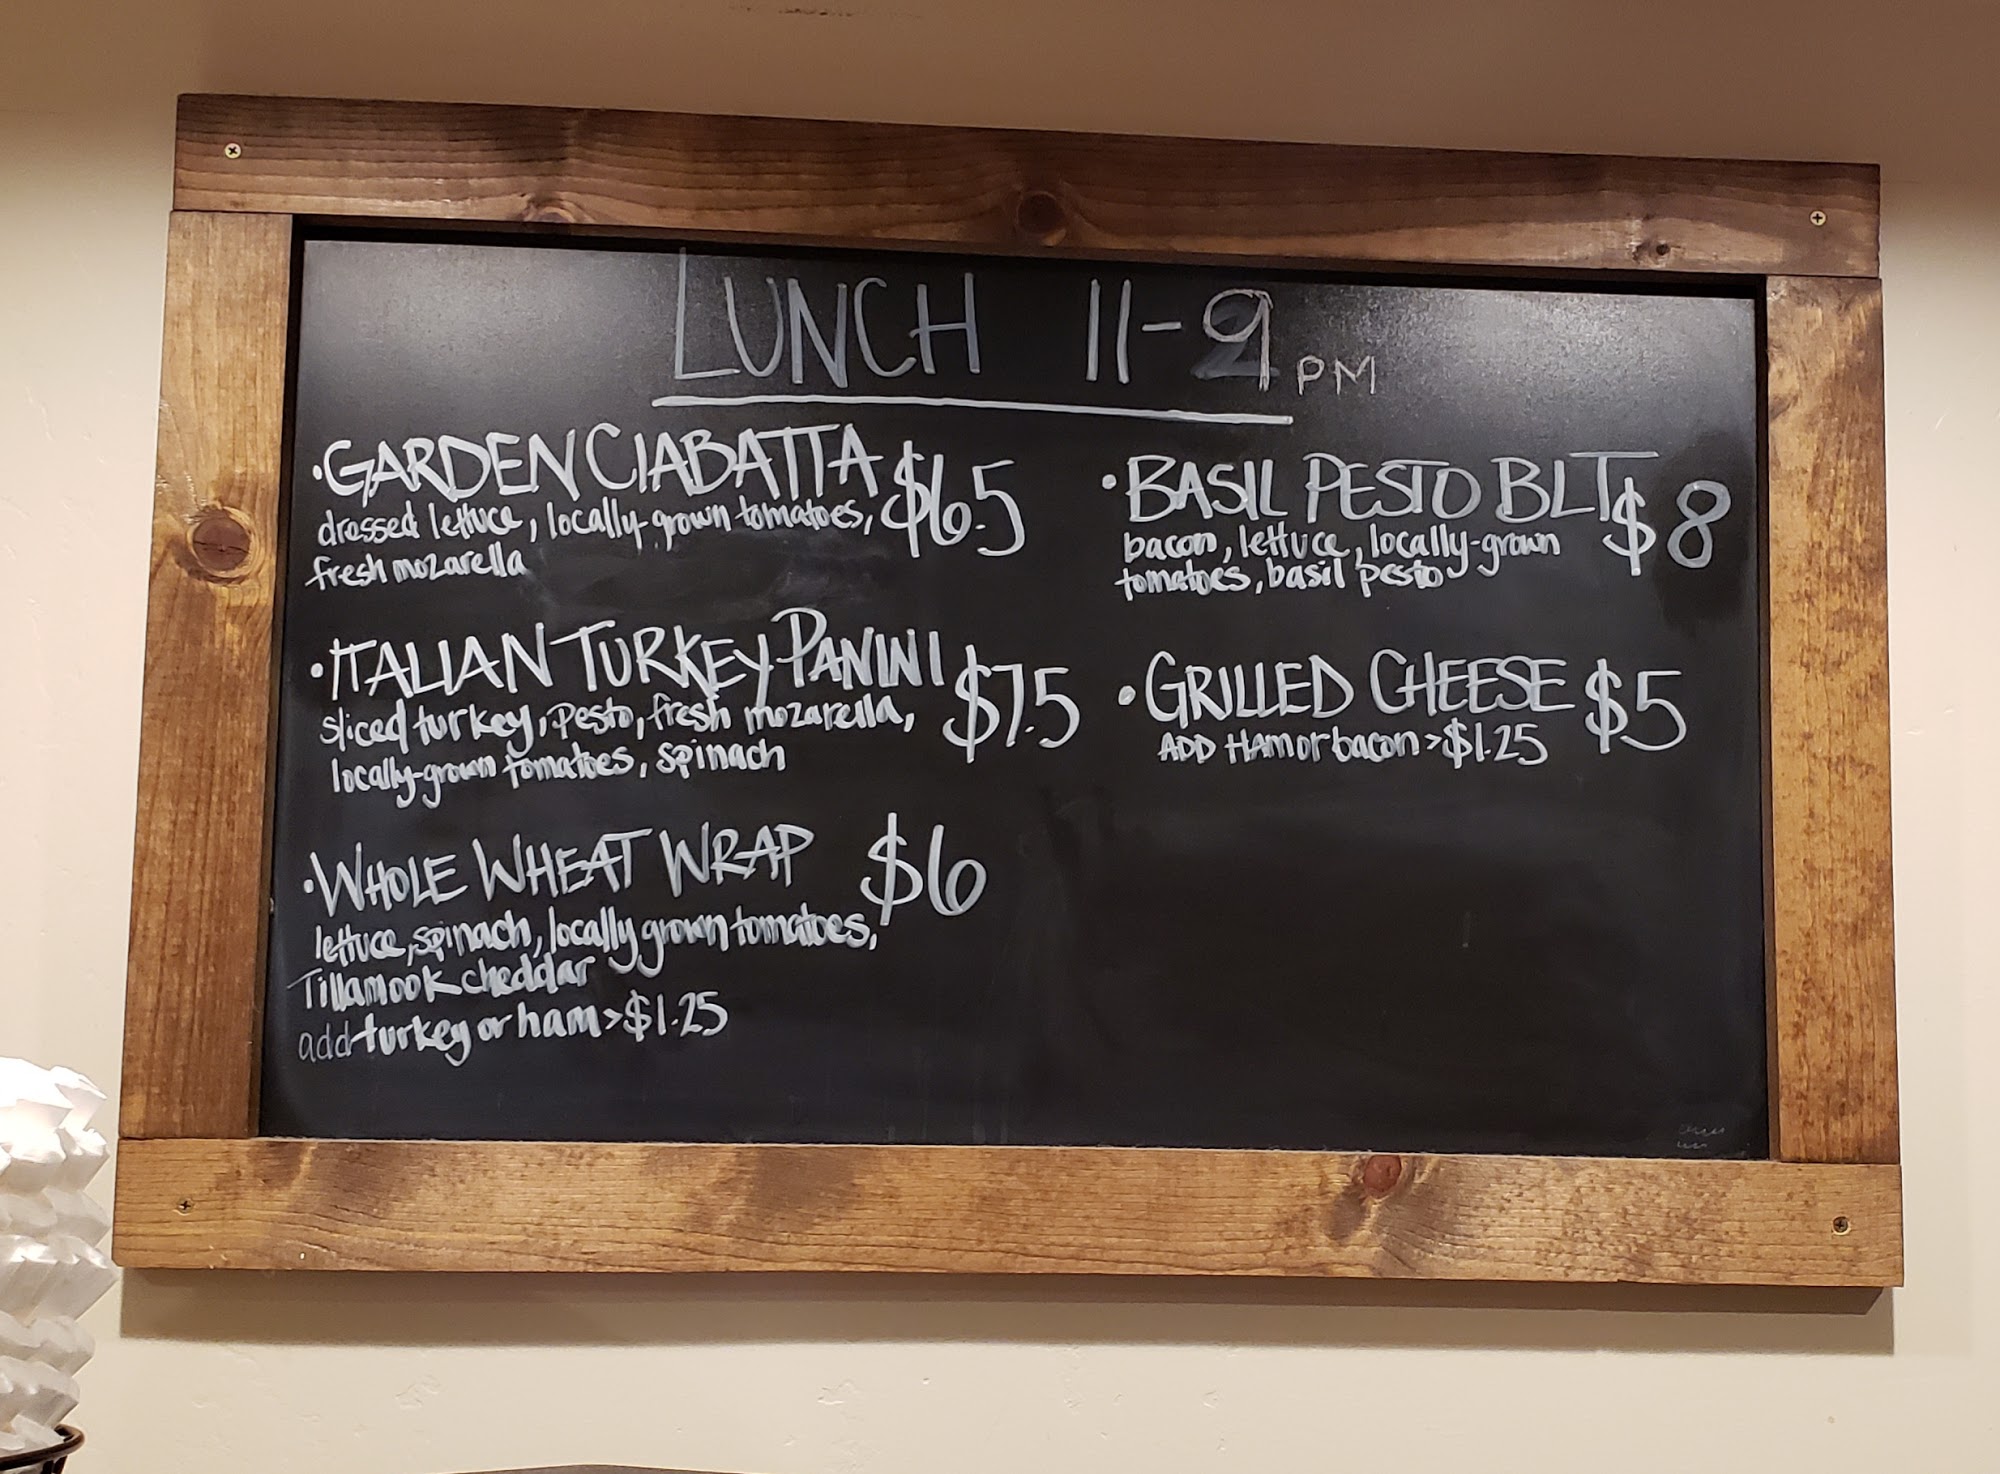 LUNCH 11-9 PM
•GARDEN CIABATTA $6.5
dressed lettuce, locally-grown tomatoes,
fresh mozarella
•ITALIAN TURKEY PANINI $7.5
sliced turkey, pesto, fresh mozarella,
locally-grown tomatoes, spinach
•WHOLE WHEAT WRAP $6
lettuce, spinach, locally grown tomatoes,
Tillamook cheddar
add turkey or ham > $1.25
•BASIL PESTO BLT $8
bacon, lettuce, locally-grown
tomatoes, basil pesto
•GRILLED CHEESE $5
ADD HAM or bacon > $1.25